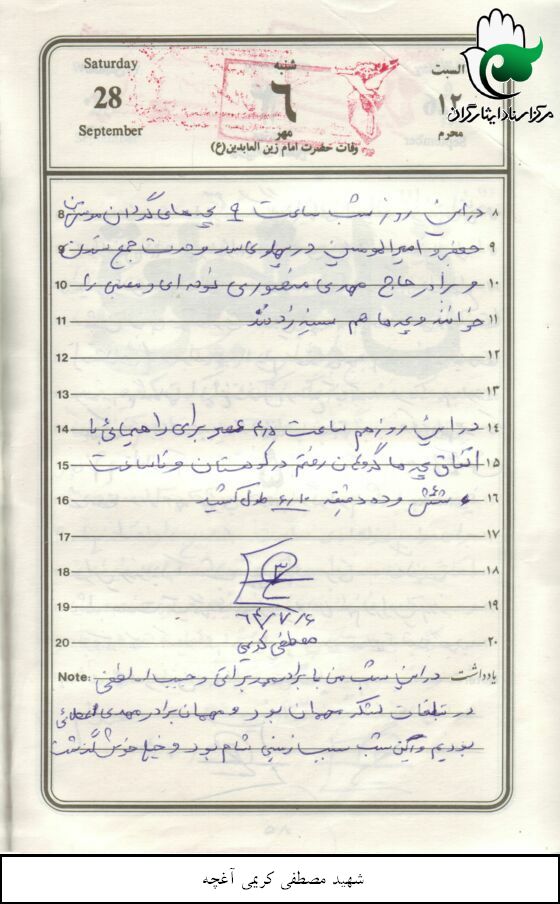 مرکز اسناد ایثارگران
Saturday شنبه السبت
28 ۶ ۱۲
September مهر محرم
وفات حضرت امام زین العابدین(ع)
8 در این روز شب ساعت ۹ بچه های گردان ۸
9 جعفر و امیرالمومنین در پهلوی سد وحدت جمع شدن ۹
10 و برادر حاج مهدی منصوری نوحه ای و را ۱۰
11 خواندند و بچه ها هم سینه زدند ۱۱
12 ۱۲
13 ۱۳
14 در این روز هم ساعت عصر برای راهپیمائی با ۱۴
15 اتفاق بچه ها گروهان رفتم در کوهستان و تا ساعت ۱۵
16 شش و ده دقیقه ۶/۱۰ طول کشید ۱۶
17 ۱۷
18 ۱۸
19 ۶۴/۷/۶ ۱۹
20 مصطفی کریمی ۲۰
Note: در این شب من با برادر و حبیب ا.. لطفی یادداشت
در تبلیغات لشکر مهمان بود و مهمان برادر مهدی
بودیم و این شب سیب زمینی شام بود و خیلی خوش گذشت
شهید مصطفی کریمی آغچه